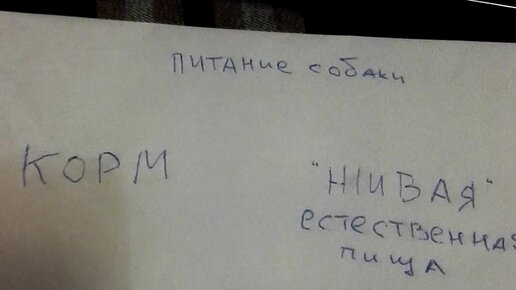 питание собаки
КОРМ
"ЖИВАЯ"
естественная
пища